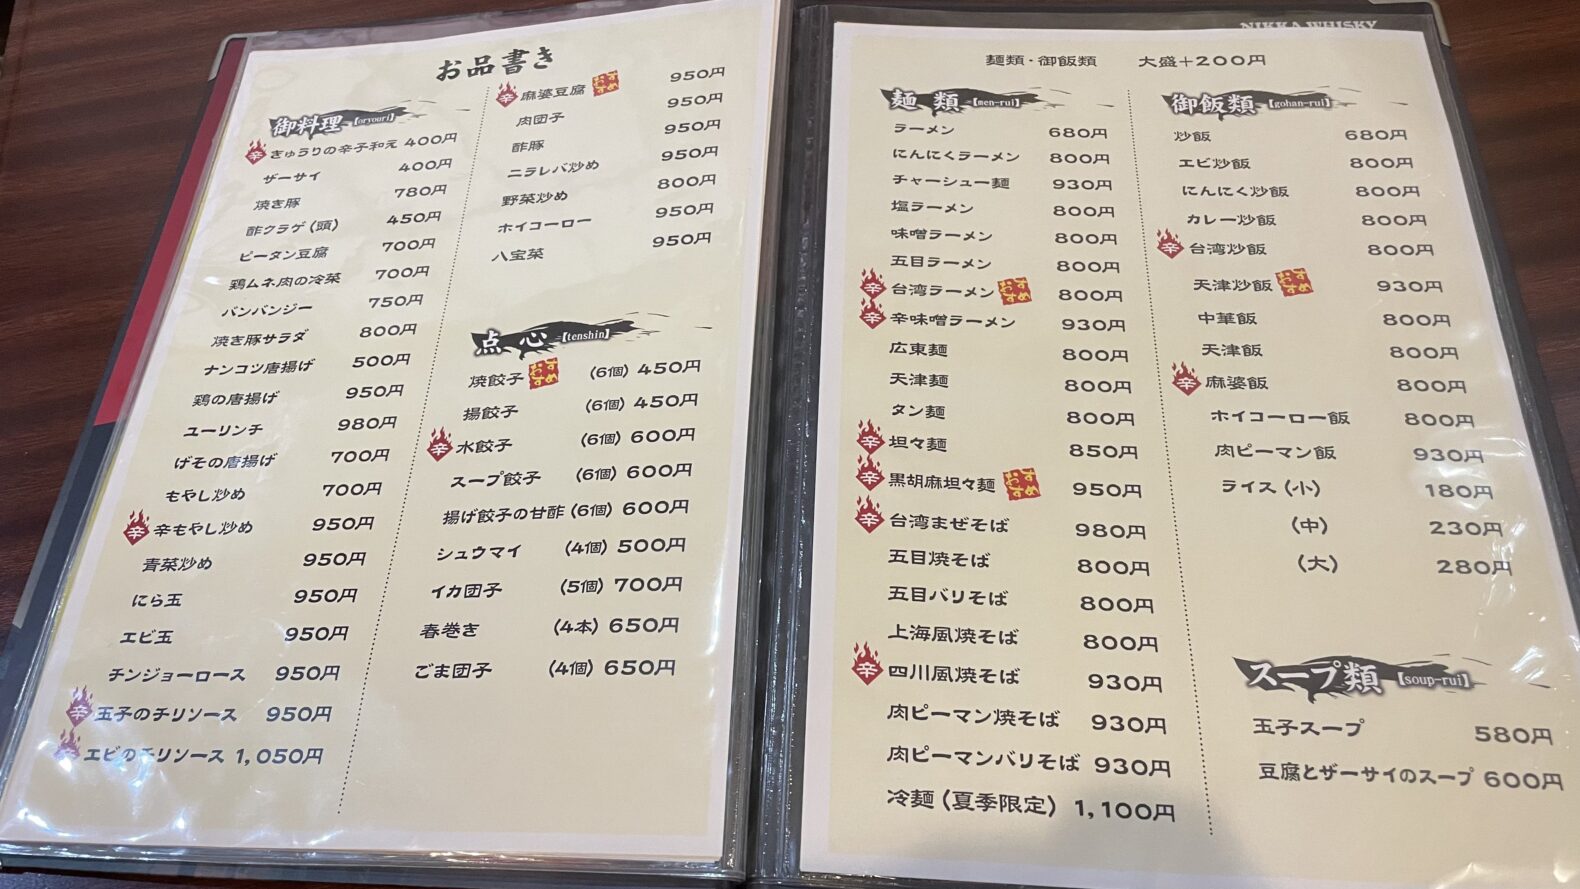 お品書き
御料理【oryouri】
辛 きゅうりの辛子和え 400円
ザーサイ 400円
焼き豚 780円
酢クラゲ(頭) 450円
ピータン豆腐 700円
鶏ムネ肉の冷菜 700円
バンバンジー 750円
焼き豚サラダ 800円
ナンコツ唐揚げ 500円
鶏の唐揚げ 950円
ユーリンチ 980円
げその唐揚げ 700円
もやし炒め 700円
辛 辛もやし炒め 950円
青菜炒め 950円
にら玉 950円
エビ玉 950円
チンジョーロース 950円
辛 玉子のチリソース 950円
辛 エビのチリソース 1,050円
辛 麻婆豆腐 おすすめ 950円
肉団子 950円
酢豚 950円
ニラレバ炒め 950円
野菜炒め 800円
ホイコーロー 950円
八宝菜 950円
点心【tenshin】
焼餃子 おすすめ (6個) 450円
揚餃子 (6個) 450円
辛 水餃子 (6個) 600円
スープ餃子 (6個) 600円
揚げ餃子の甘酢 (6個) 600円
シュウマイ (4個) 500円
イカ団子 (5個) 700円
春巻き (4本) 650円
ごま団子 (4個) 650円
NIKKA WHISKY
麺類・御飯類 大盛+200円
麺類【men-rui】
ラーメン 680円
にんにくラーメン 800円
チャーシュー麺 930円
塩ラーメン 800円
味噌ラーメン 800円
五目ラーメン 800円
辛 台湾ラーメン おすすめ 800円
辛 辛味噌ラーメン 930円
広東麺 800円
天津麺 800円
タン麺 800円
辛 坦々麺 850円
辛 黒胡麻坦々麺 おすすめ 950円
辛 台湾まぜそば 980円
五目焼そば 800円
五目バリそば 800円
上海風焼そば 800円
辛 四川風焼そば 930円
肉ピーマン焼そば 930円
肉ピーマンバリそば 930円
冷麺(夏季限定) 1,100円
御飯類【gohan-rui】
炒飯 680円
エビ炒飯 800円
にんにく炒飯 800円
カレー炒飯 800円
辛 台湾炒飯 800円
天津炒飯 おすすめ 930円
中華飯 800円
天津飯 800円
辛 麻婆飯 800円
ホイコーロー飯 800円
肉ピーマン飯 930円
ライス(小) 180円
(中) 230円
(大) 280円
スープ類【soup-rui】
玉子スープ 580円
豆腐とザーサイのスープ 600円